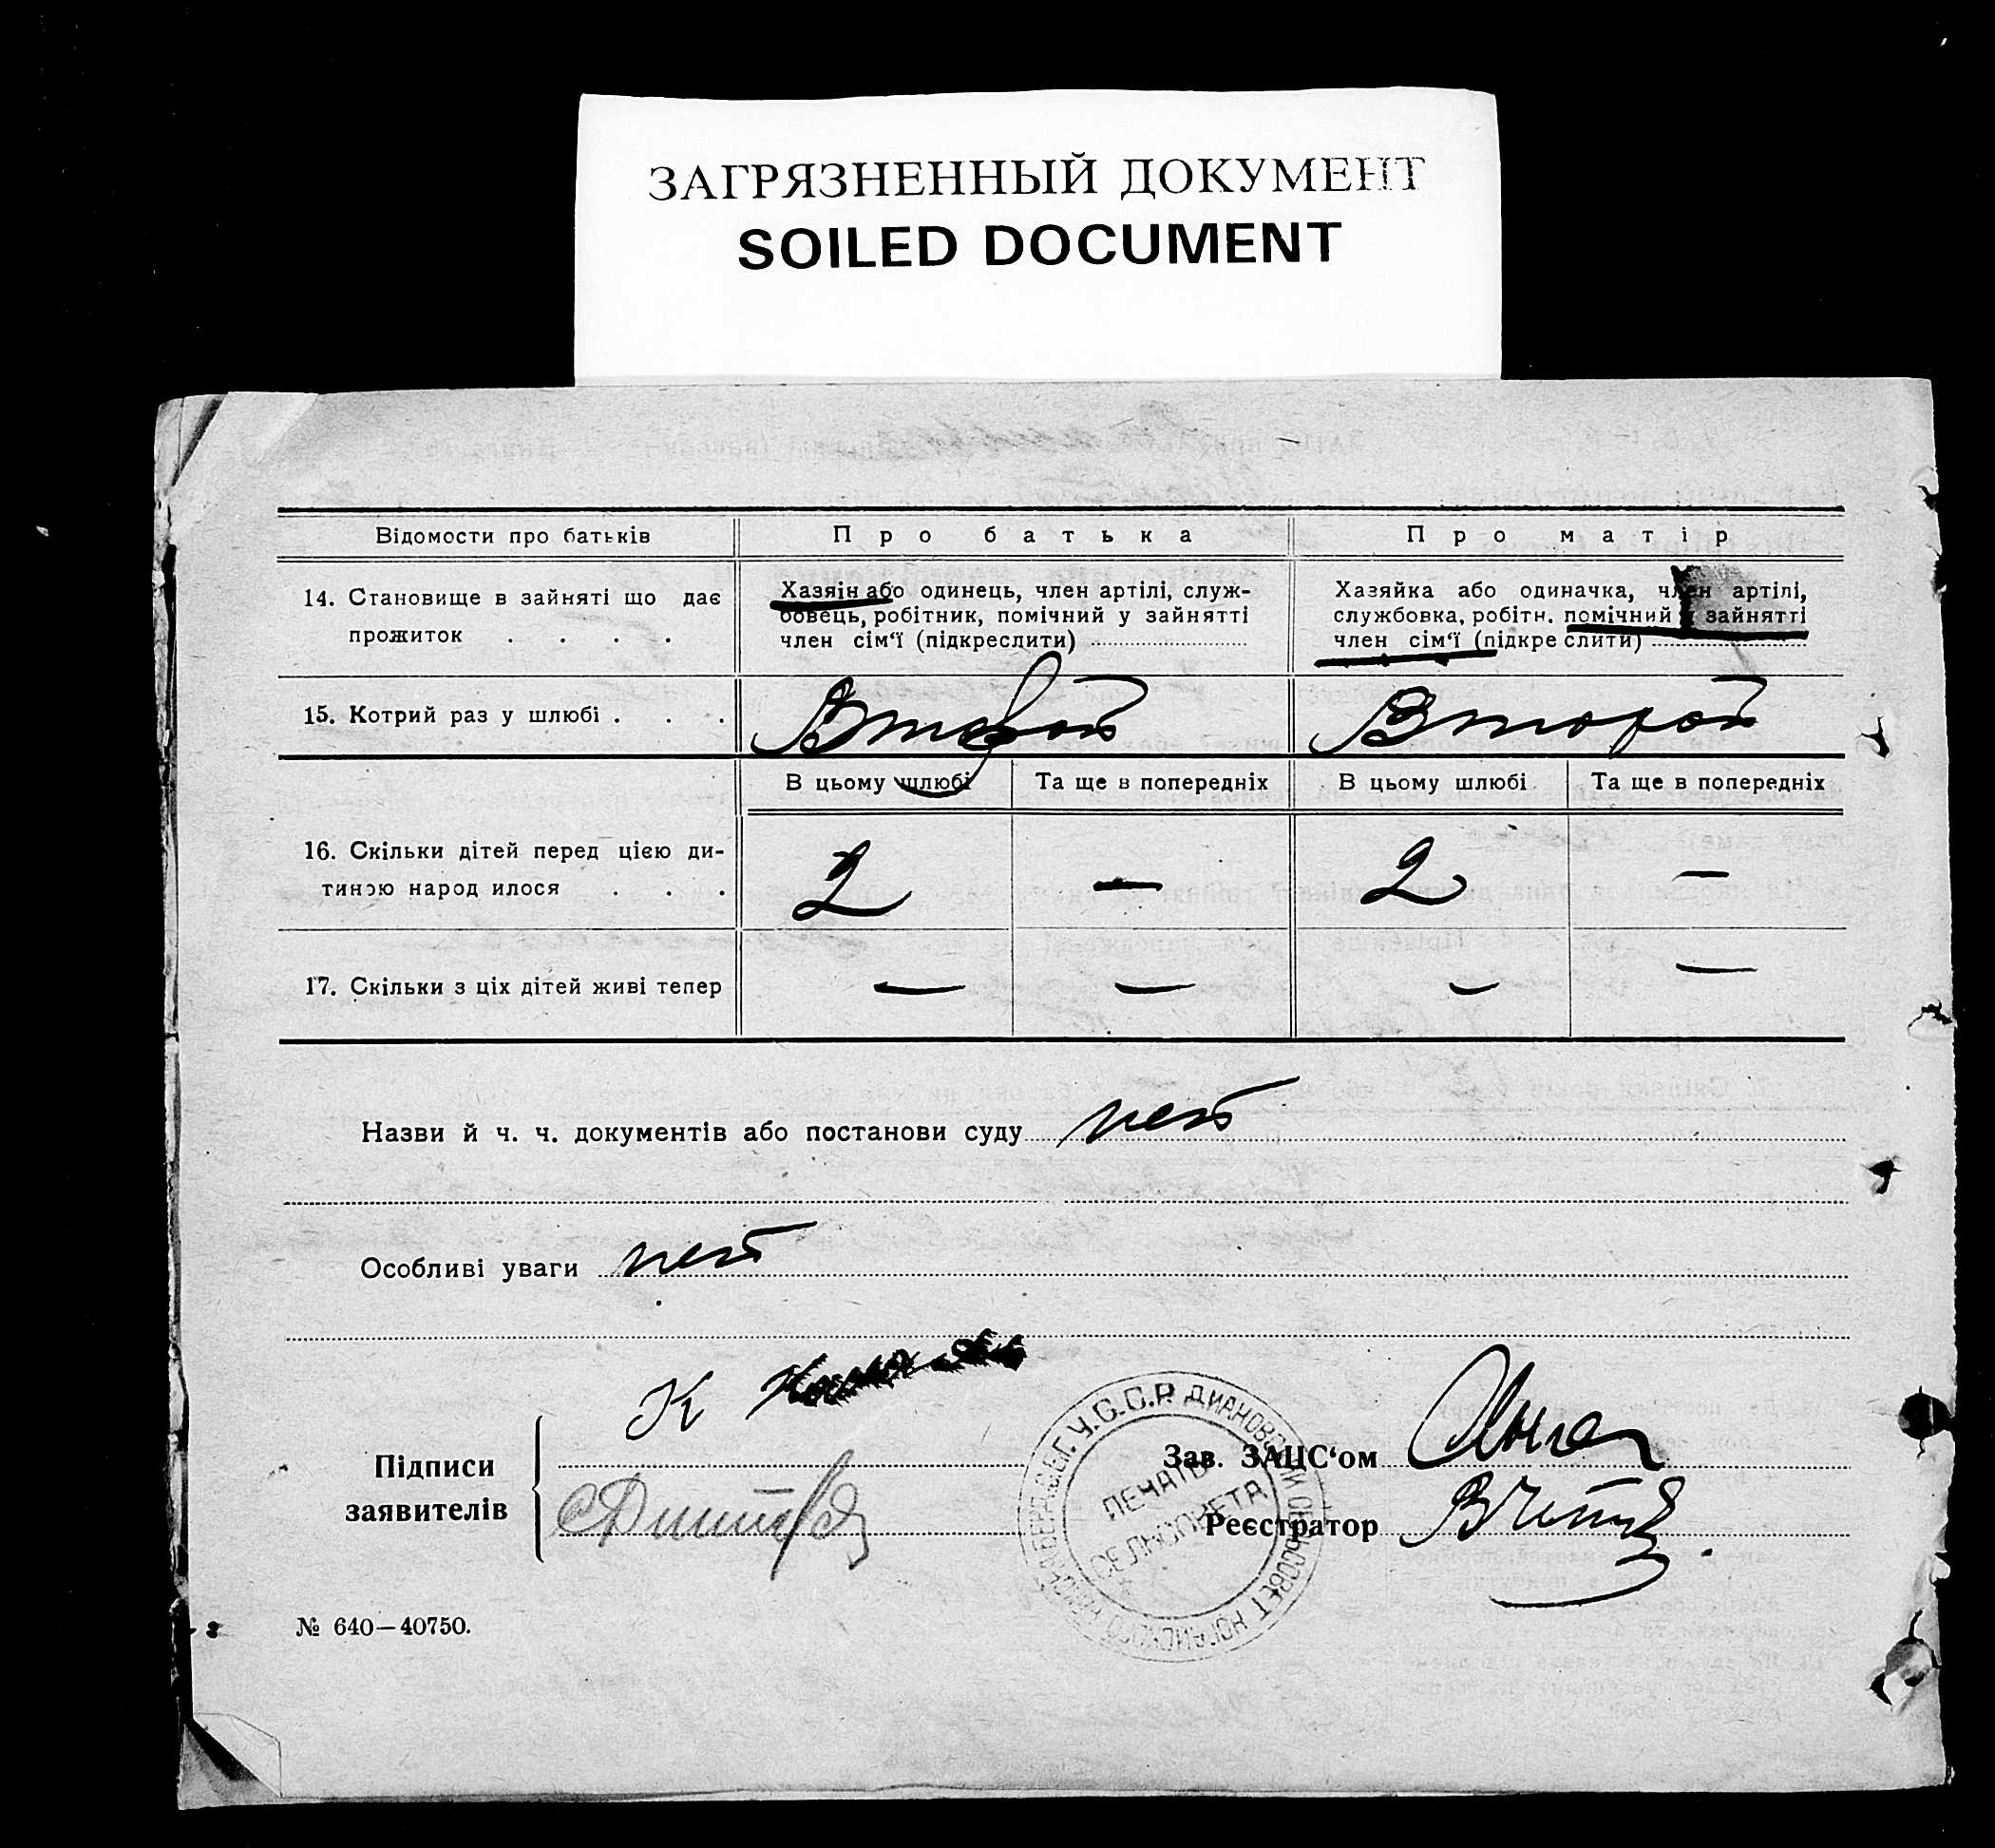 ЗАГРЯЗНЕННЫЙ ДОКУМЕНТ
SOILED DOCUMENT
Відомости про батьків
Про батька
Про матір
14. Становище в зайняті що дає
прожиток . . . .
Хазяін або одинець, член артілі, служ-
бовець, робітник, помічний у зайнятті
член сім‘ї (підкреслити)
Хазяйка або одиначка, член артілі,
службовка, робітн. помічний у зайнятті
член сім‘ї (підкре слити)
15. Котрий раз у шлюбі . . .
Второй
Второй
В цьому шлюбі
Та ще в попередніх
В цьому шлюбі
Та ще в попередніх
16. Скільки дітей перед цією ди-
тиною народ илося . . .
2
—
2
—
17. Скільки з ціх дітей живі тепер
—
—
—
—
Назви й ч. ч. документів або постанови суду нет
Особливі уваги нет
К
Підписи
заявителів
Зав. ЗАЦС‘ом
Реєстратор
У.С.С.Р. ДИАНОВСКИЙ СЕЛЬСОВЕТ НОГАЙСКОГО
ПЕЧАТЬ
СЕЛЬСОВЕТА
№ 640—40750.